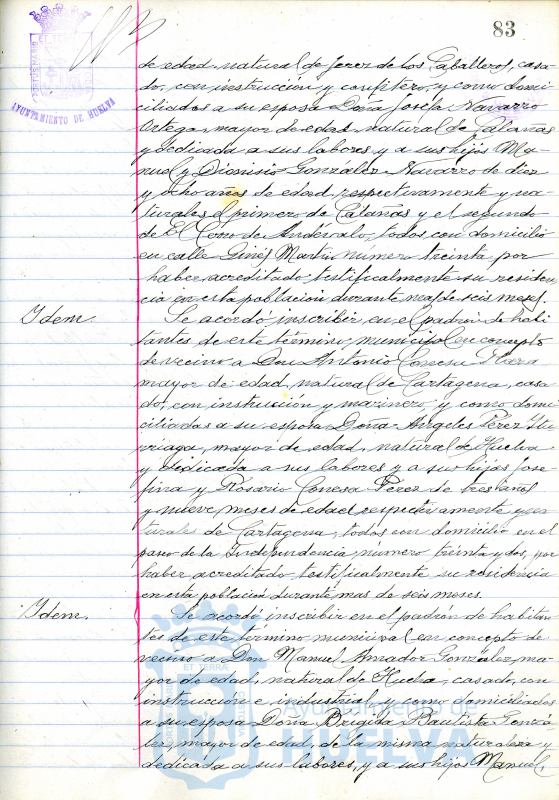 83
AYUNTAMIENTO DE HUELVA
de edad, natural de Jerez de los Caballeros, casa-
do, con instrucción y confitero, y como domi-
ciliados a su esposa Doña Josefa Navarro
Ortega, mayor de edad, natural de Calañas
y dedicada a sus labores, y a sus hijos Ma-
nuel y Dionisio González Navarro de diez
y ocho años de edad respectivamente y na-
turales el primero de Calañas y el segundo
de El Cerro de Andévalo, todos con domicilio
en calle Ginés Martín número treinta por
haber acreditado testificalmente su residen-
cia en esta población durante mas de seis meses.
Idem.
Se acordó inscribir en el padrón de habi-
tantes de este término municipal en concepto
de vecino a Don Antonio Conesa
mayor de edad, natural de Cartagena, casa-
do, con instrucción y marinero, y como domi-
ciliadas a su esposa Doña Angeles Pérez
mayor de edad, natural de Huelva
y dedicada a sus labores y a sus hijos Jose-
fina y Rosario Conesa Pérez de tres años
y nueve meses de edad respectivamente y na-
turales de Cartagena, todos con domicilio en el
paseo de la Independencia número treinta y dos, por
haber acreditado testificalmente su residencia
en esta población durante mas de seis meses.
Idem.
Se acordó inscribir en el padrón de habitan-
tes de este término municipal en concepto de
vecino a Don Manuel Amador González, ma-
yor de edad, natural de Huelva, casado, con
instrucción e industrial y como domiciliados
a su esposa Doña Brígida Bautista Gonzá-
lez, mayor de edad, de la misma naturaleza y
dedicada a sus labores, y a sus hijos Manuel,
Ayuntamiento de
HUELVA